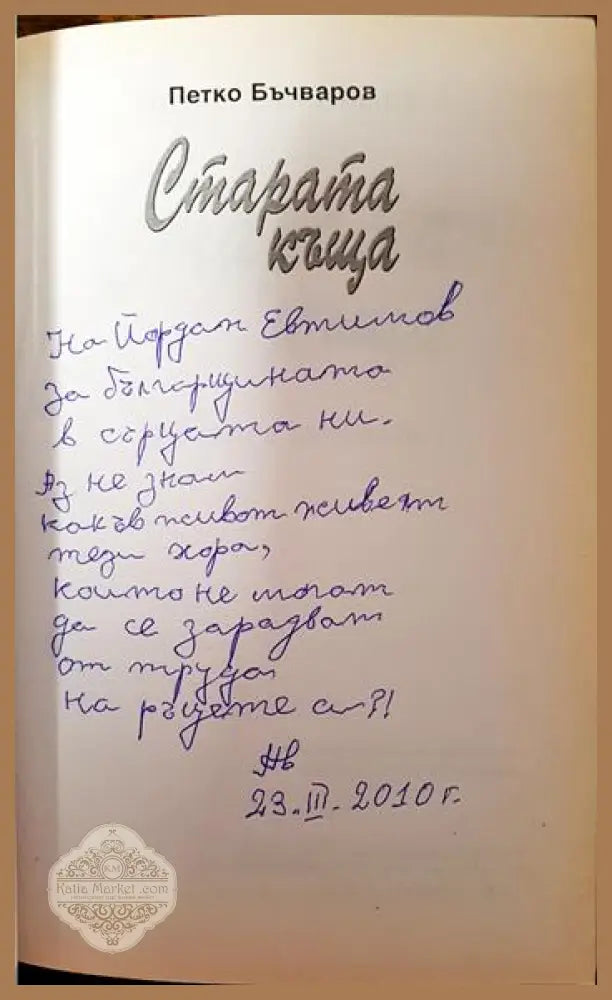 Петко Бъчваров
Старата
къща
На Йордан Евтимов
за българщината
в сърцата ни.
Аз не знам
какъв живот живеят
тези хора,
които не могат
да се зарадват
от труда
на ръцете си?!
23.III.2010 г.
KM
Katia Market.com